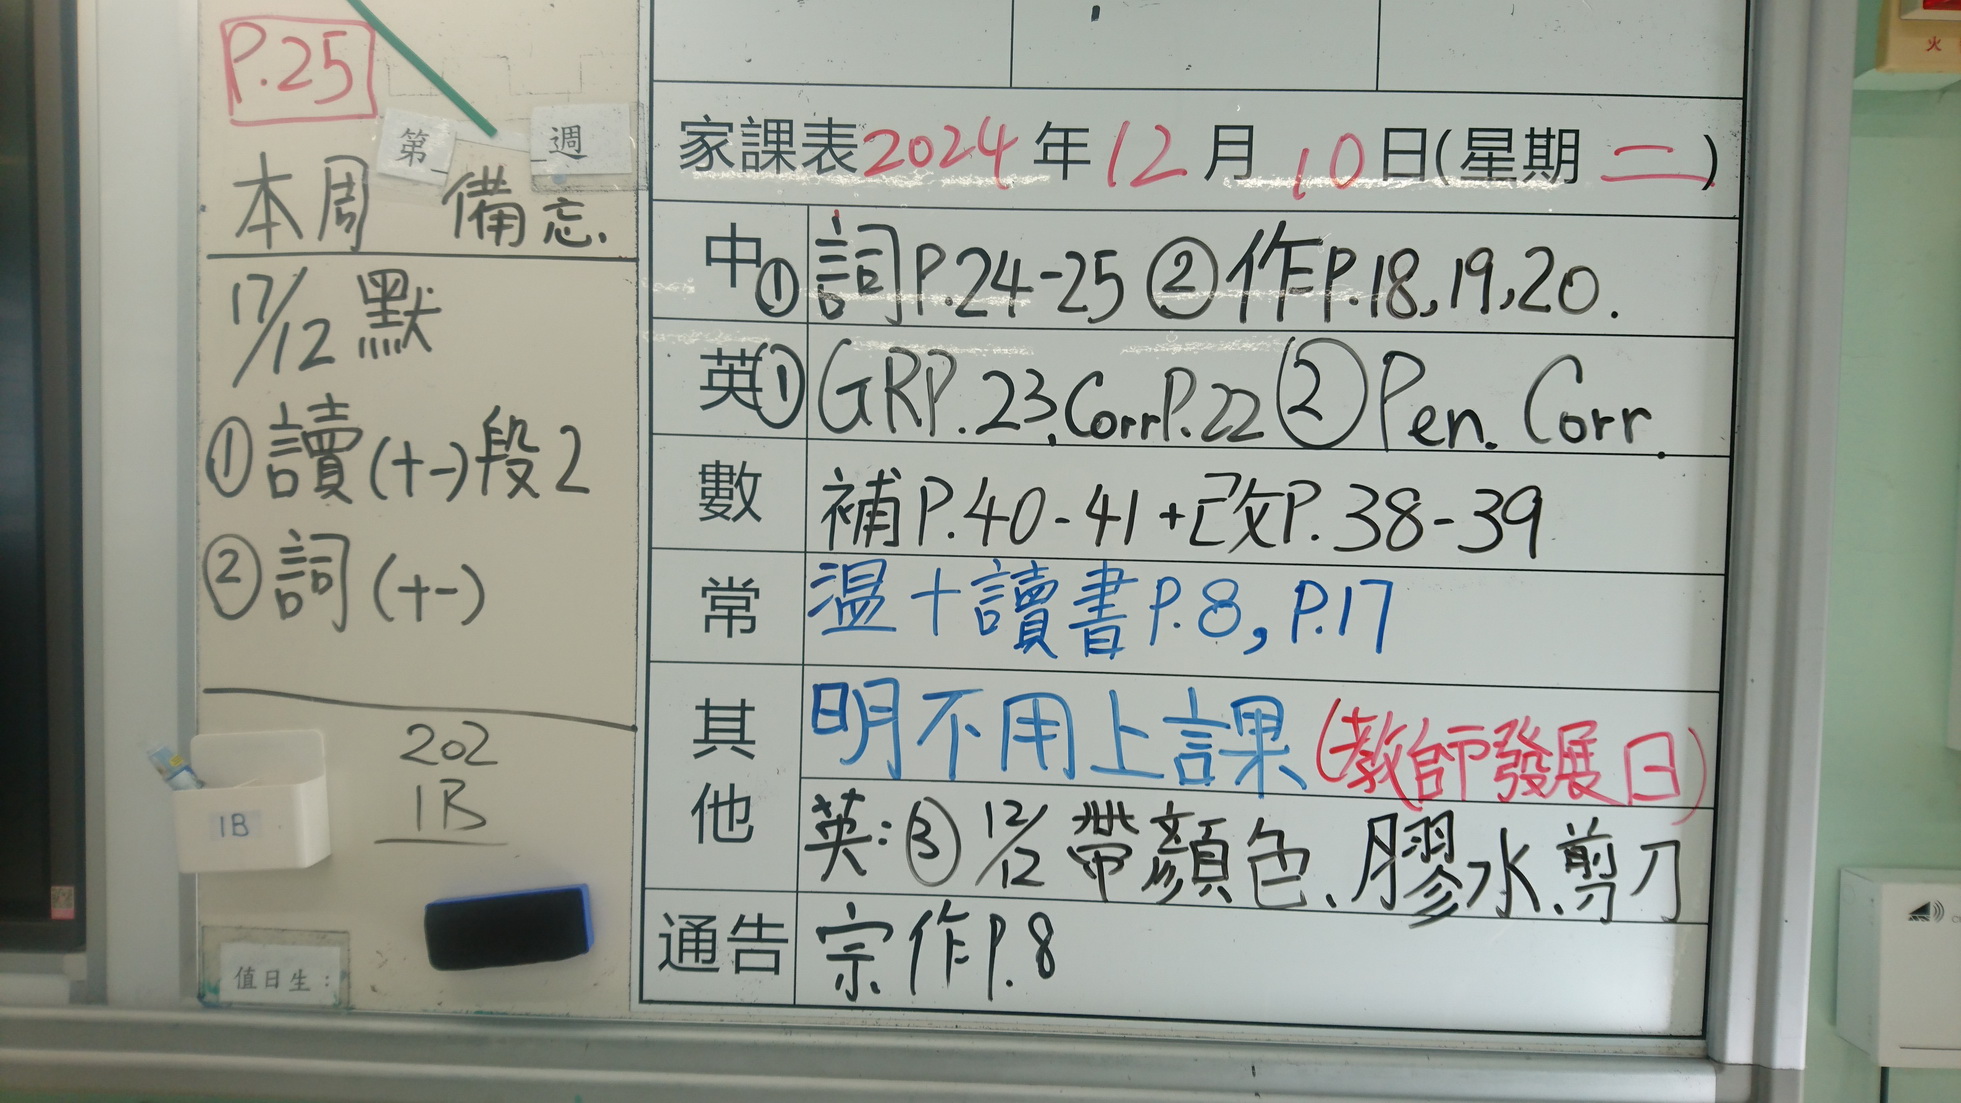 P.25
第 週
本周 備忘.
17/12 默
①讀(+-)段2
②詞(+-)
202
1B
1B
值日生:
家課表2024年12月10日(星期二)
中①詞P.24-25②作P.18,19,20.
英①GRP.23.CorrP.22②Pen. Corr.
數 補P.40-41+改P.38-39
常 温+讀書P.8,P.17
其他 明不用上課(教師發展日)
英:③12/12帶顏色、膠水、剪刀
通告 宗作P.8
火